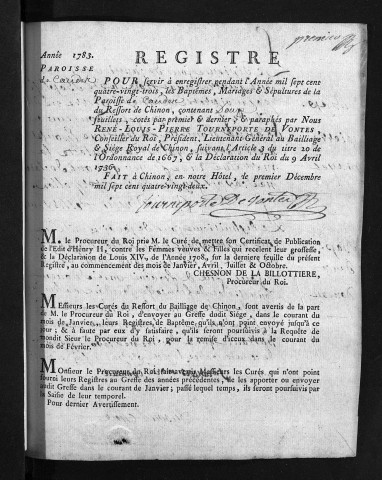 Année 1783.
REGISTRE
premier
PAROISSE
de
POUR servir à enregistrer pendant l'Année mil sept cent
quatre-vingt-trois, les Baptêmes, Mariages & Sépultures de la
Paroisse de
du Ressort de Chinon, contenant douze
feuillets, cotés par premier & dernier; & paraphés par Nous
RENÉ-LOUIS-PIERRE TOURNEPORTE DE VONTES,
Conseiller du Roi, Président, Lieutenant-Général au Bailliage
& Siége Royal de Chinon, suivant l'Article 3 du titre 20 de
l'Ordonnance de 1667, & la Déclaration du Roi du 9 Avril
1736.
FAIT à Chinon, en notre Hôtel, le premier Décembre
mil sept cent quatre-vingt-deux.
Tourneporte De Vontes
M. le Procureur du Roi prie M. le Curé de mettre son Certificat de Publication
de l'Edit d'Henry II, contre les Femmes veuves & Filles qui recelent leur grossesse,
& la Déclaration de Louis XIV, de l'Année 1708, sur la derniere feuille du présent
Registre, au commencement des mois de Janvier, Avril, Juillet & Octobre.
CHESNON DE LA BILLOTTIERE,
Procureur du Roi.
Messieurs les Curés du Ressort du Bailliage de Chinon, sont avertis de la part
de M. le Procureur du Roi, d'envoyer au Greffe dudit Siége, dans le courant du
mois de Janvier, leurs Registres de Baptême qu'ils n'ont point envoyé jusqu'à ce
jour; & à faute par eux d'y satisfaire, qu'ils seront poursuivis à la Requête de
mondit Sieur le Procureur du Roi, pour la remise d'iceux dans le courant du
mois de Février.
Monsieur le Procureur du Roi fait avertir Messieurs les Curés qui n'ont point
fourni leurs Registres au Greffe des années précédentes, de les apporter ou envoyer
audit Greffe dans le courant de Janvier; passé lequel temps, ils seront poursuivis par
la Saisie de leur temporel.
Pour dernier Avertissement.